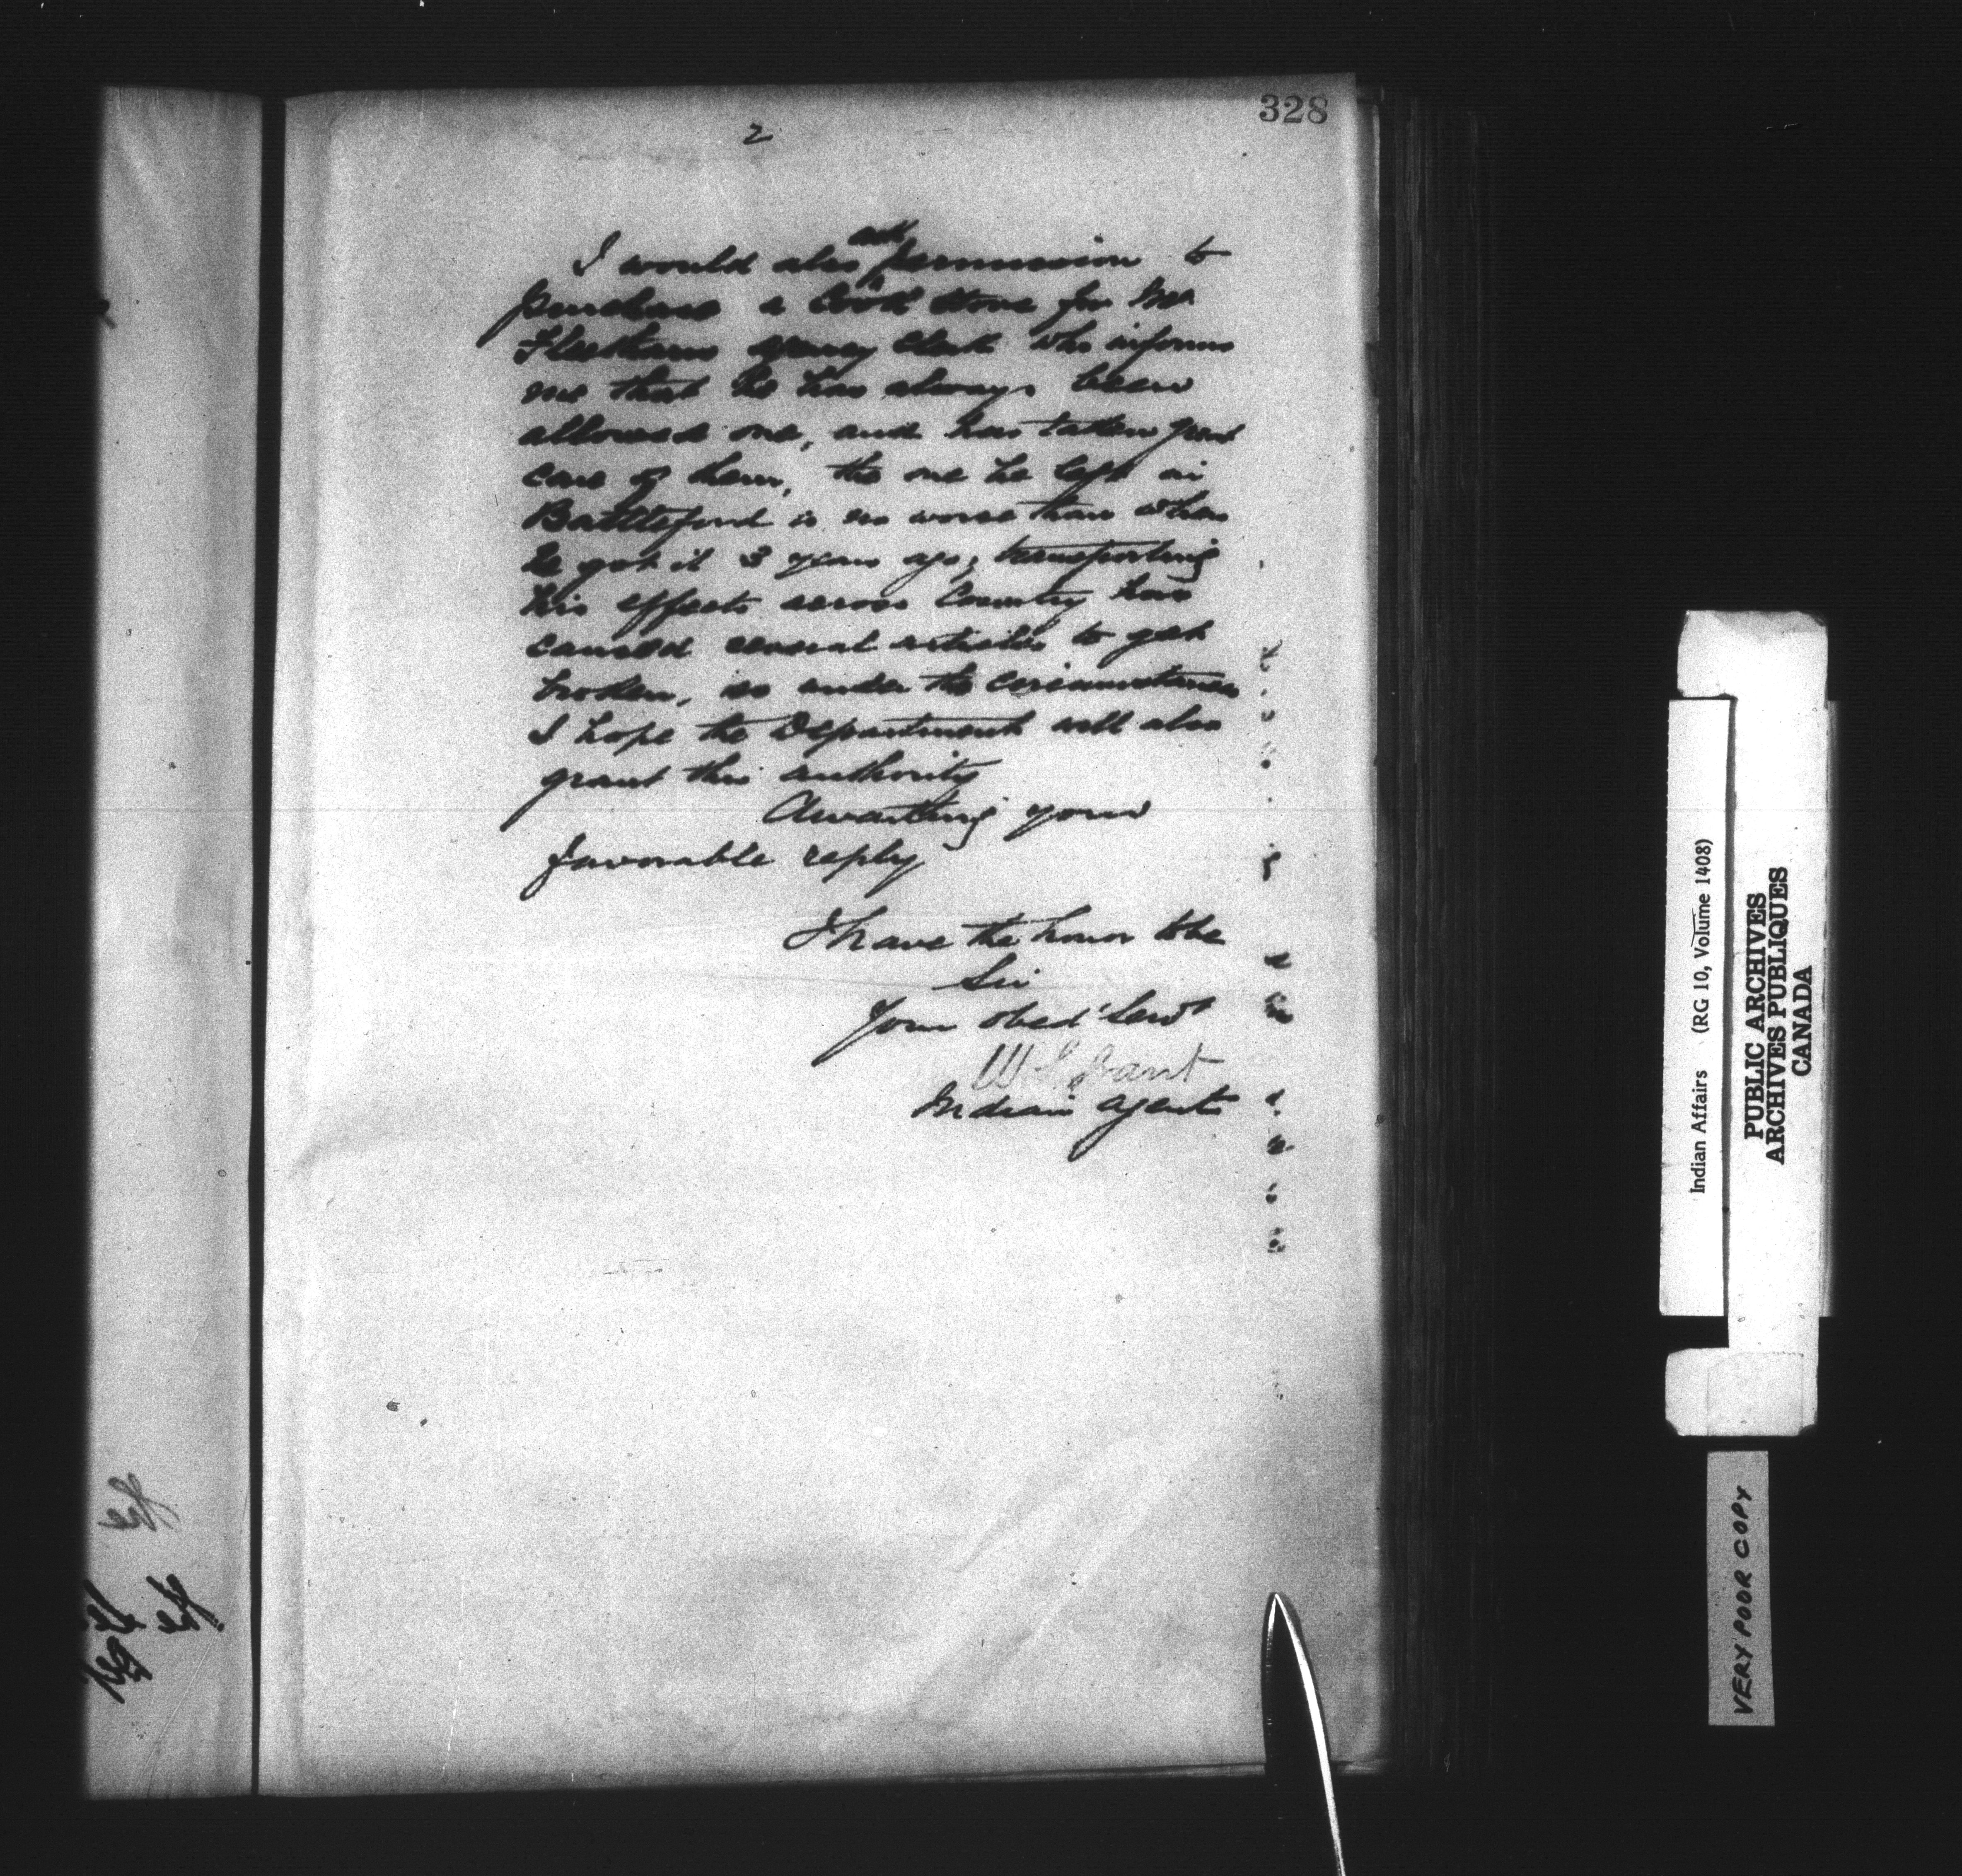 328
2
I would also ask permission to
purchase a Cook Stove for Mr
Fleetham agency Clerk who informs
me that he has always been
allowed one, and has taken great
care of them, the one he left in
Battleford is no worse than when
he got it 3 years ago; transporting
his effects across Country has
caused several articles to get
broken, so under the circumstances
I hope the Department will also
grant this authority
Awaiting your
favorable reply
I have the honor to be
Sir
Your obed' Servt
W S Grant
Indian Agent
Indian Affairs (RG 10, Volume 1408)
PUBLIC ARCHIVES
ARCHIVES PUBLIQUES
CANADA
VERY POOR COPY